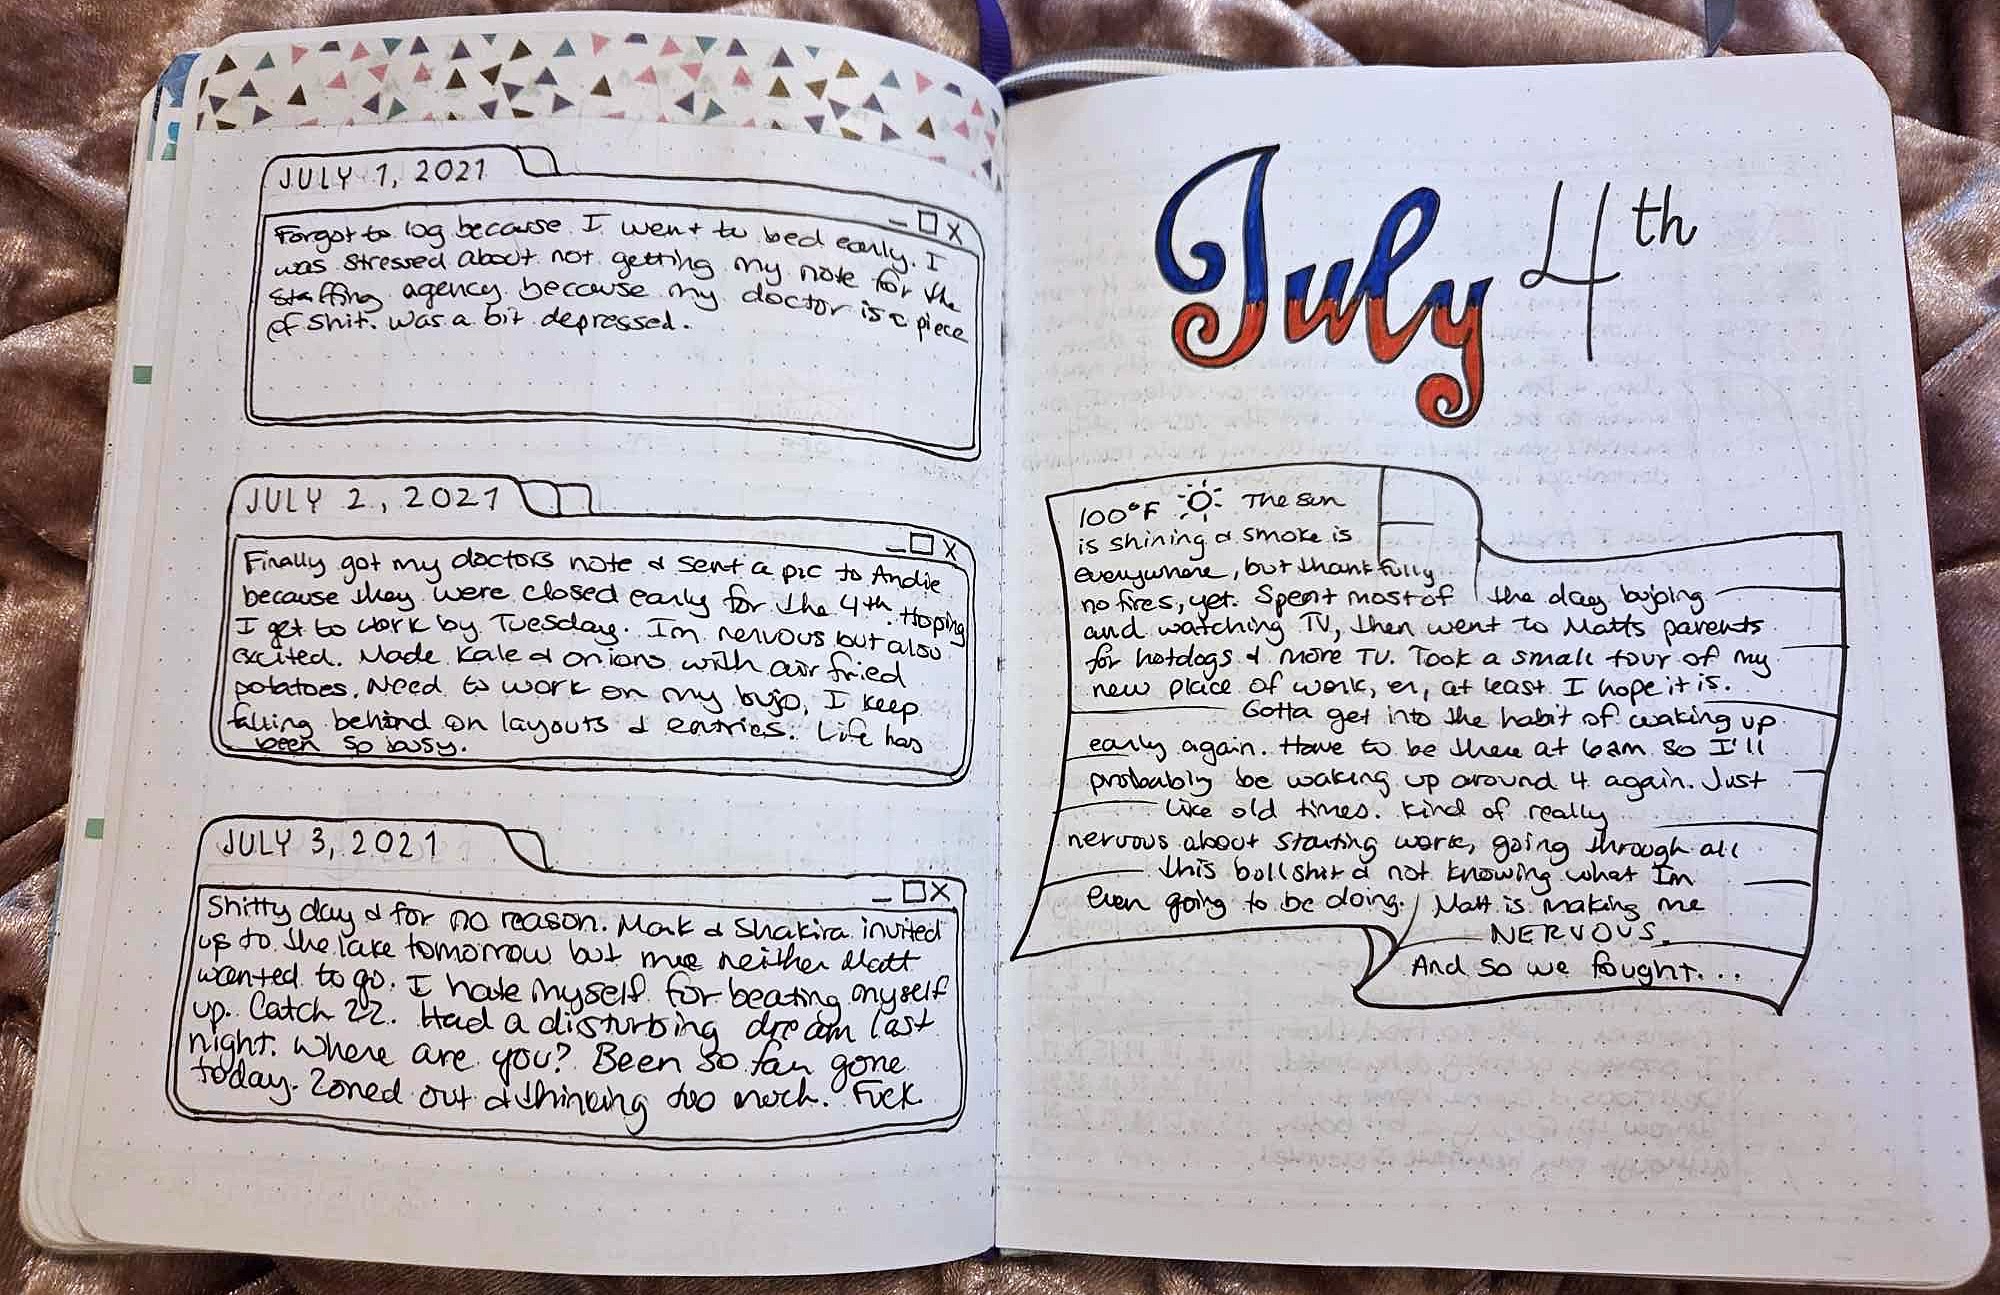 JULY 1, 2021
Forgot to log because I went to bed early. I
was stressed about not getting my note for the
staffing agency because my doctor is a piece
of shit. Was a bit depressed.
JULY 2, 2021
Finally got my doctors note & sent a pic to Andie
because they were closed early for the 4th. Hoping
I get to work by Tuesday. Im nervous but also
excited. Made kale & onions with air fried
potatoes. Need to work on my bujo, I keep
falling behind on layouts & entries. Life has
been so busy.
JULY 3, 2021
Shitty day & for no reason. Mark & Shakira invited
up to the lake tomorrow but me neither Matt
wanted to go. I hate myself for beating myself
up. Catch 22. Had a disturbing dream last
night. Where are you? Been so far gone
today. Zoned out & thinking too much. Fuck
July 4th
100°F The sun
is shining & smoke is
everywhere, but thankfully
no fires, yet. Spent most of the day bujoing
and watching TV, then went to Matts parents
for hotdogs & more TV. Took a small tour of my
new place of work, er, at least I hope it is.
Gotta get into the habit of waking up
early again. Have to be there at 6am so I'll
probably be waking up around 4 again. Just
like old times. Kind of really
nervous about starting work, going through all
this bullshit & not knowing what Im
even going to be doing. Matt is making me
NERVOUS.
And so we fought...